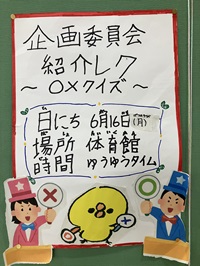 企画委員会
紹介レク
～〇×クイズ～
日にち 6月16日(月)
場所 体育館
時間 ゆうゆうタイム